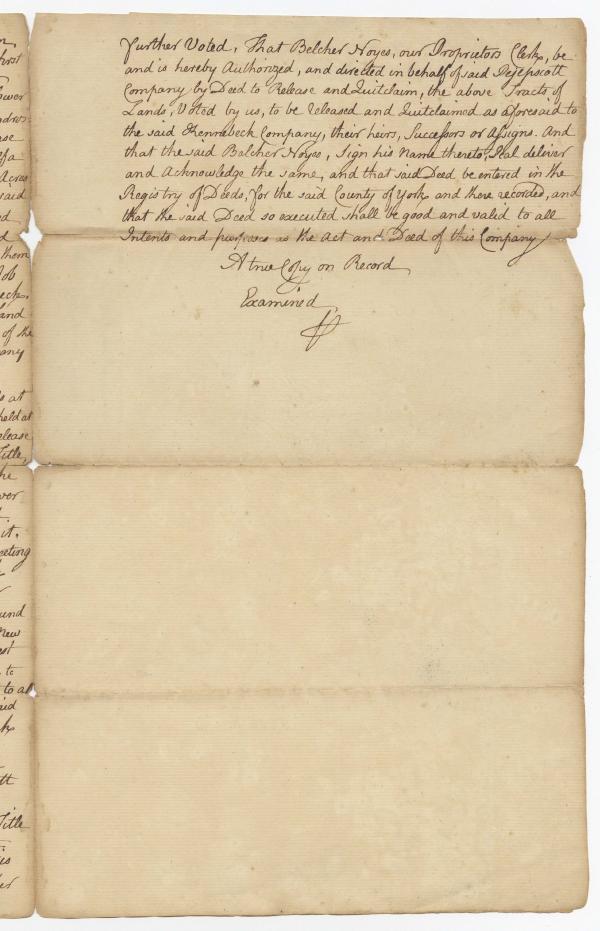 Further Voted, That Belcher Noyes, our Proprietors Clerk, be
and is hereby Authorized, and directed in behalf of said Pejepscott
Company by Deed to Release and Quitclaim, the above Tracts of
Lands, Voted by us, to be Released and Quitclaimed as aforesaid to
the said Kennebeck Company, their heirs, Successors or Assigns. And
that the said Belcher Noyes, Sign his Name thereto, Seal deliver
and Acknowledge the same, and that said Deed be entered in the
Registry of Deeds, for the said County of York and there recorded, and
that the said Deed so executed shall be good and valid to all
Intents and purposes as the Act and Deed of this Company
A true Copy on Record
Examined
first
Acres
said
them
Job
and
of the
any
at
held at
elease
Title,
he
ver
it.
eeting
und
New
est
to
to al
aid
tt
Title